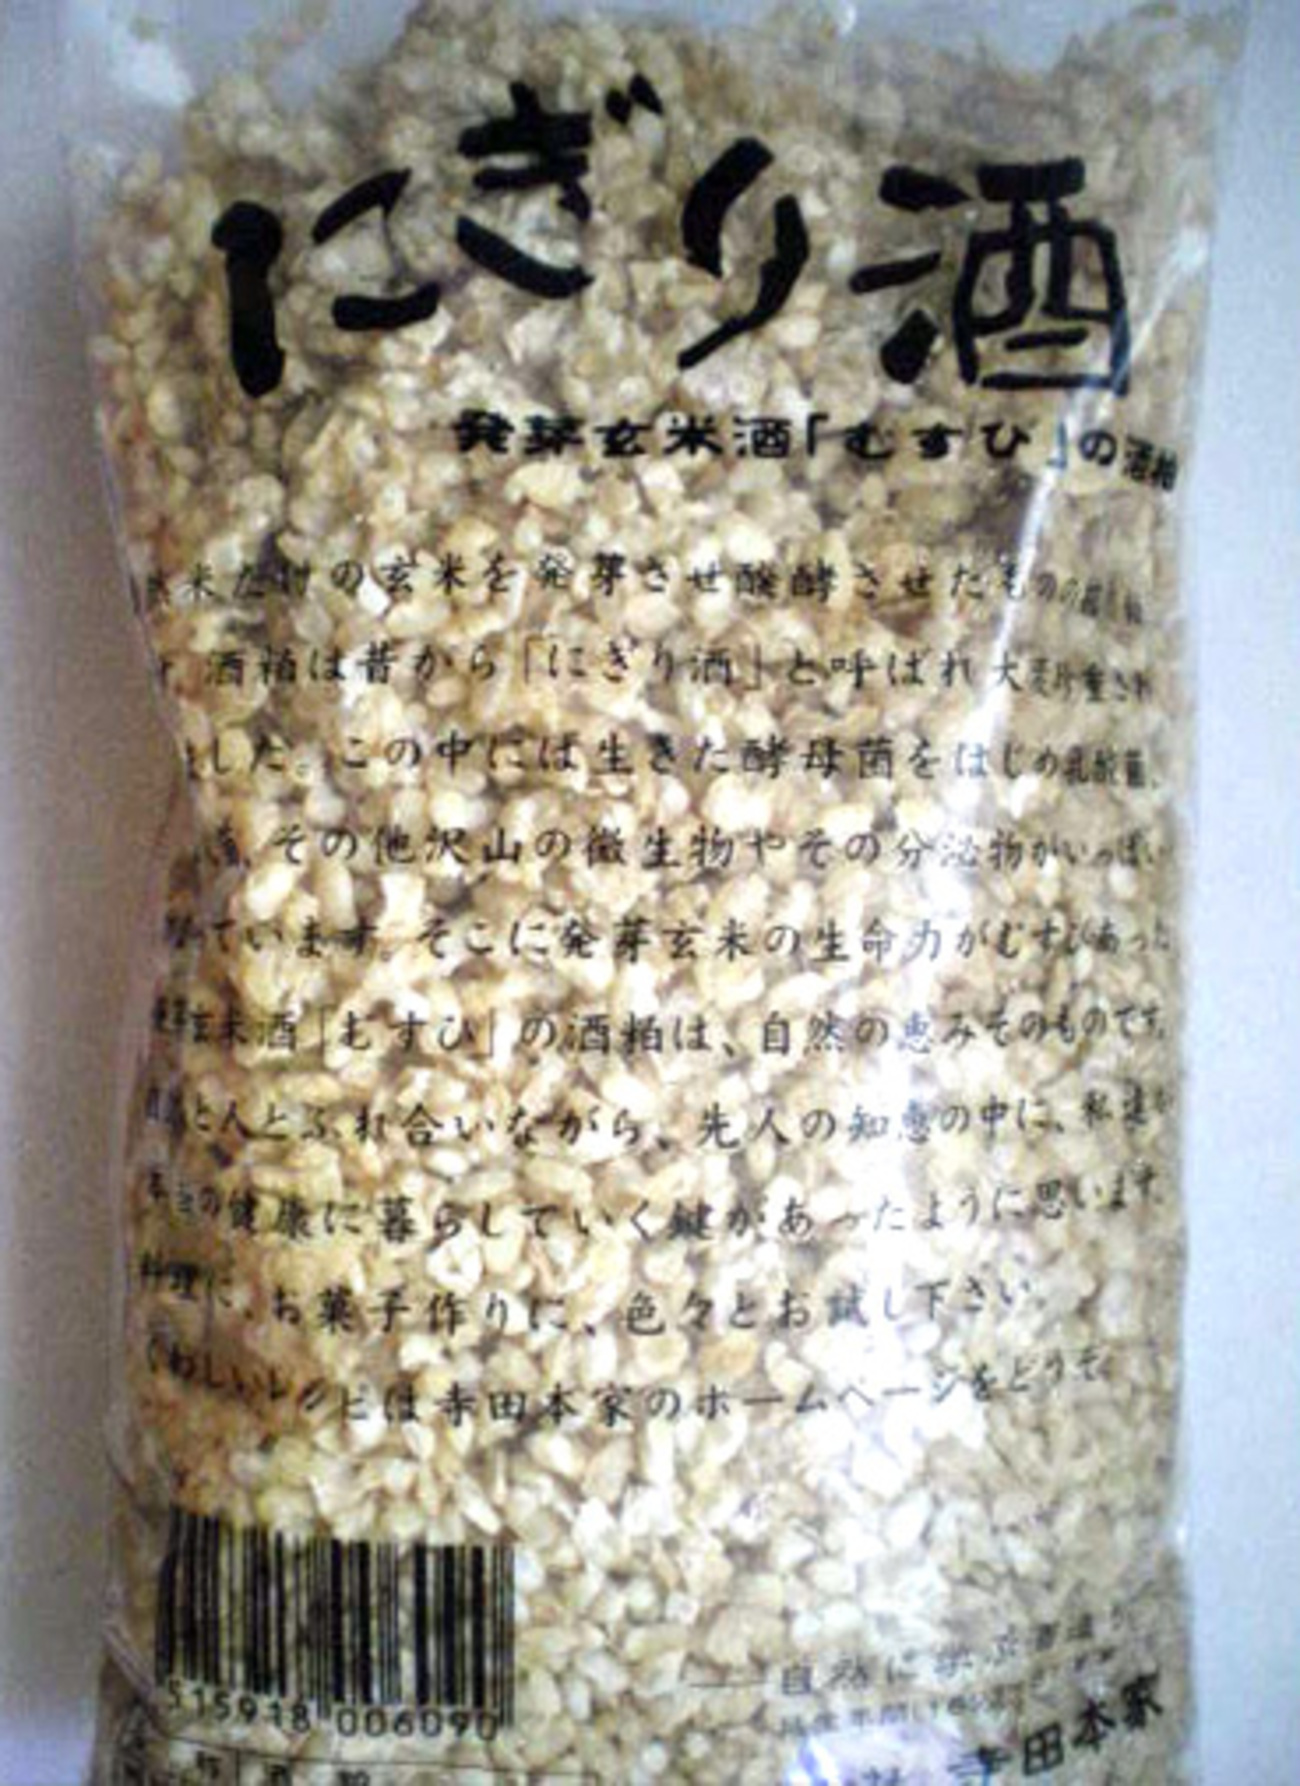 にぎり酒
発芽玄米酒「むすひ」の酒粕
の玄米を発芽させ醗酵させたものの
酒粕は昔から「にぎり酒」と呼ばれ大変珍重され
ました。この中には生きた酵母菌をはじめ乳酸菌、
菌、その他沢山の微生物やその分泌物がいっぱい
ています。そこに発芽玄米の生命力がむすびあった
発芽玄米酒「むすひ」の酒粕は、自然の恵みそのものです。
と人とふれ合いながら、先人の知恵の中に、私達が
本当の健康に暮らしていく鍵があったように思います。
料理に、お菓子作りに、色々とお試し下さい。
くわしいレシピは寺田本家のホームページをどうぞ。
515918 006090
自然に学ぶ酒造り
寺田本家